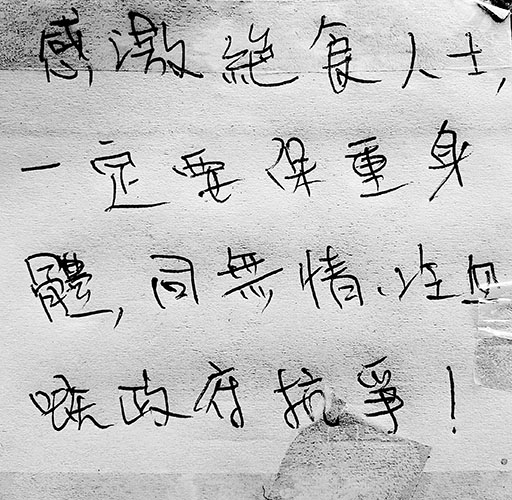 感激絕食人士,
一定要保重身
體,同無情、冷血
嘅政府抗爭!